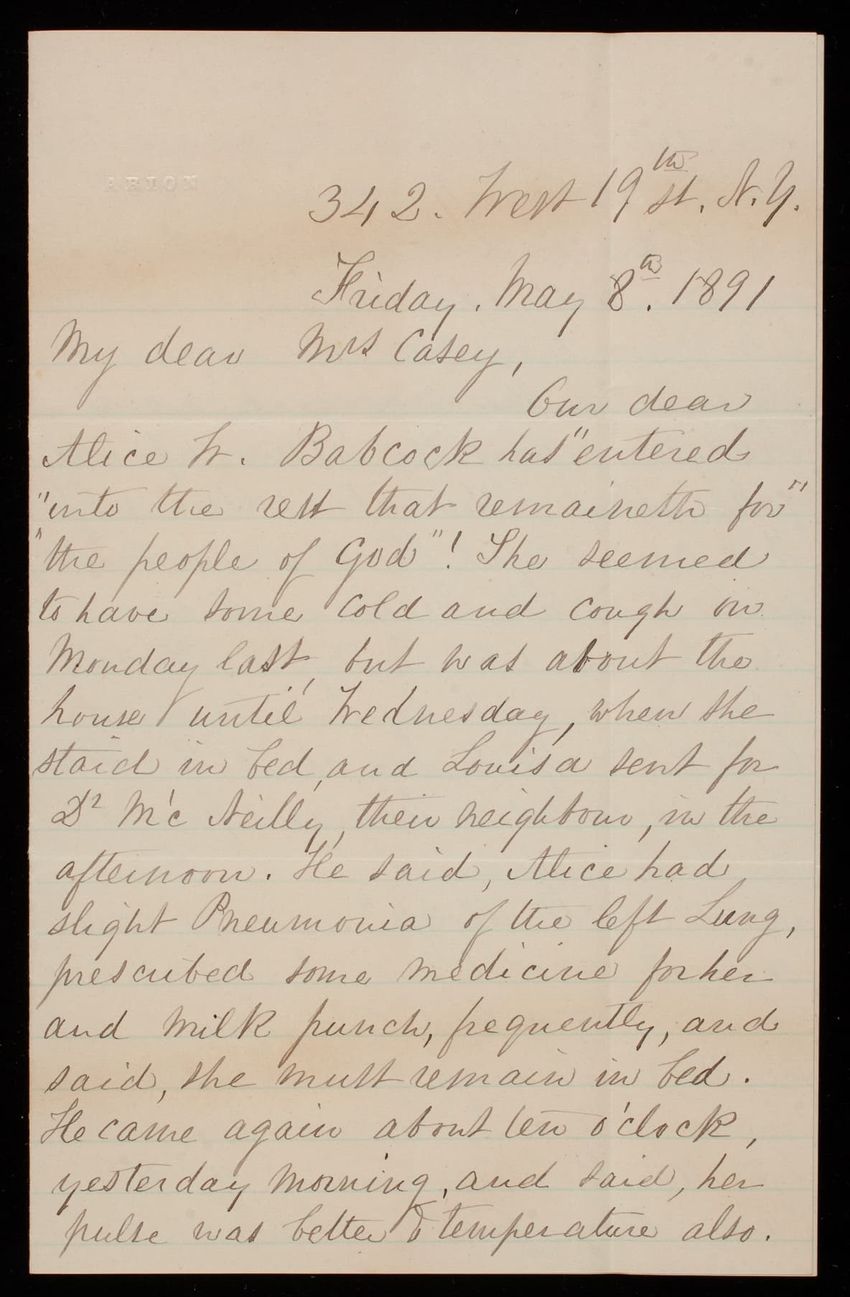 ARION
342. West 19th st. N.Y.
Friday. May 8th. 1891
My dear Mrs Casey,
Our dear
Alice W. Babcock has "entered
"into the rest that remaineth for"
"the people of God"! She seemed
to have some cold and cough on
Monday last, but was about the
house until Wednesday, when she
staid in bed, and Louisa sent for
Dr McNeilly, their neighbour, in the
afternoon. He said, Alice had
slight Pneumonia of the left Lung,
prescribed some medicine for her
and milk punch, frequently, and
said, she must remain in bed.
He came again about ten o'clock,
yesterday morning, and said, her
pulse was better & temperature also.